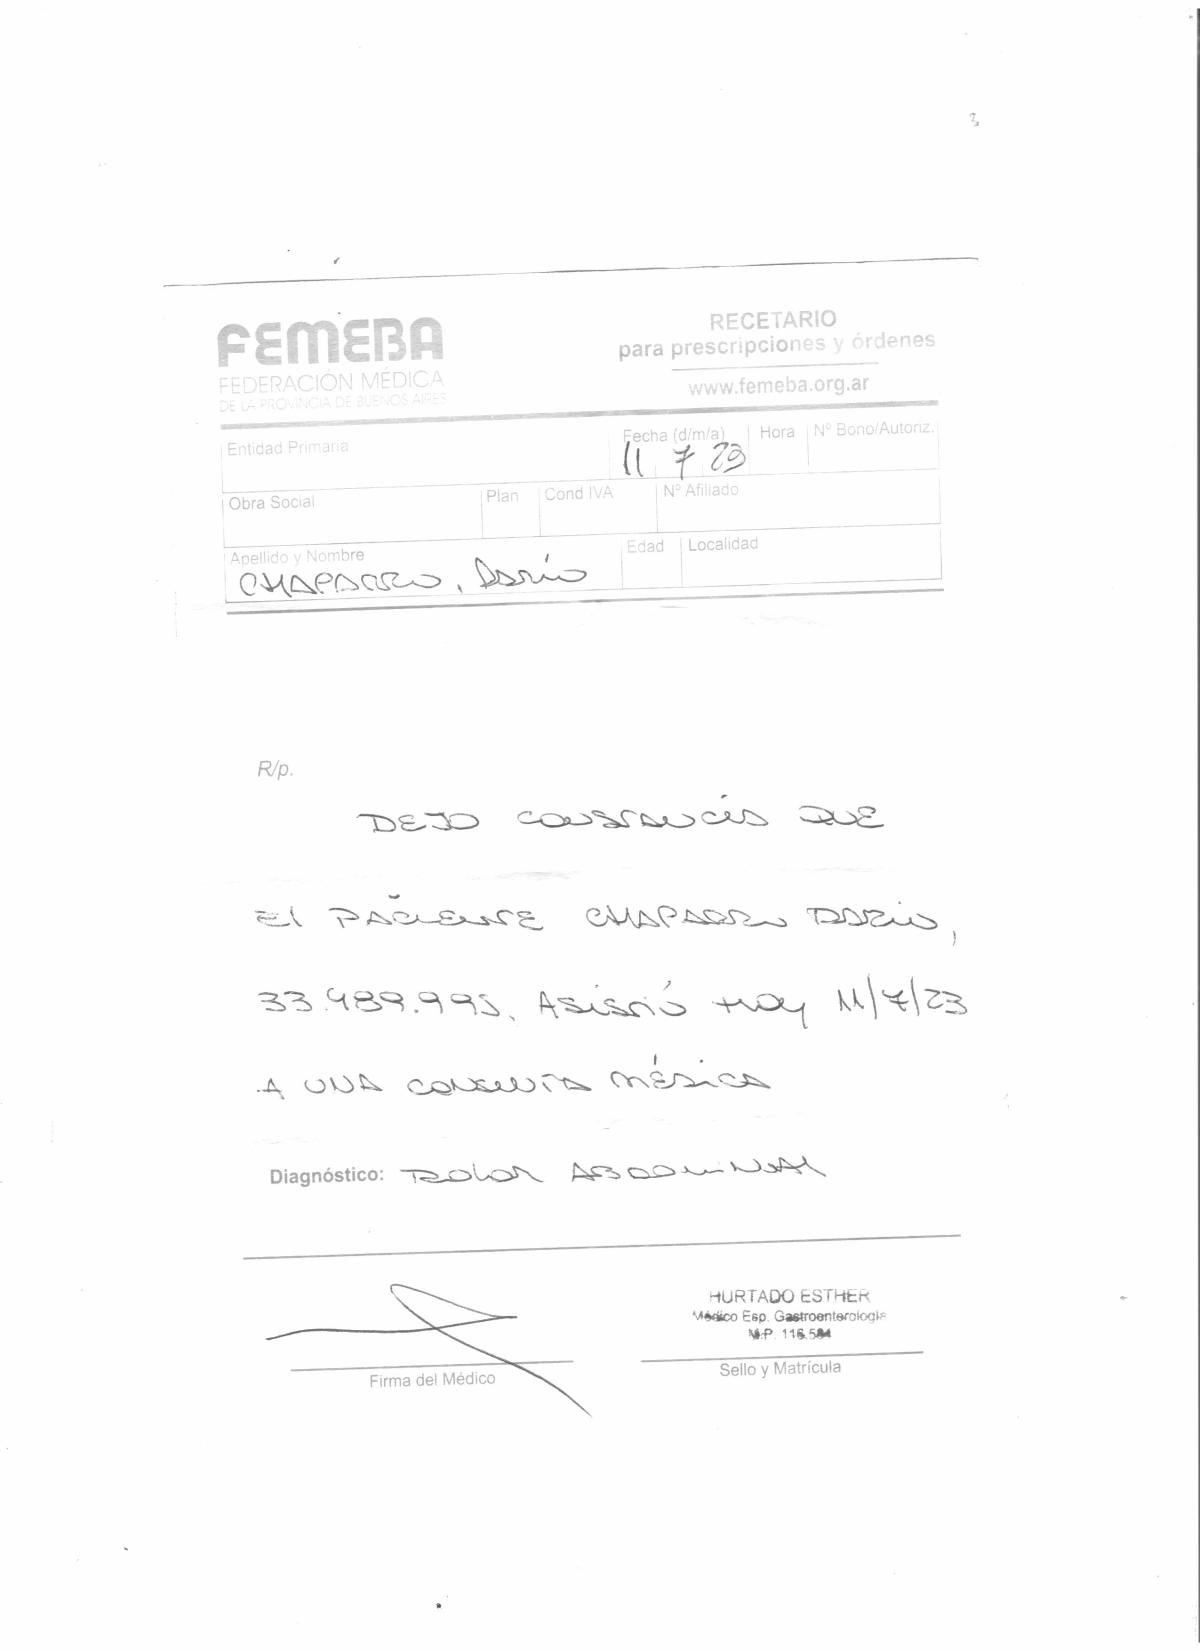 FEMEBA
FEDERACIÓN MÉDICA
DE LA PROVINCIA DE BUENOS AIRES
RECETARIO
para prescripciones y órdenes
www.femeba.org.ar
Entidad Primaria
Fecha (d/m/a) Hora Nº Bono/Autoriz.
11 7 23
Obra Social Plan Cond IVA Nº Afiliado
Apellido y Nombre Edad Localidad
CHAPARRO, Darío
R/p.
DEJO CONSTANCIA QUE
El PACIENTE CHAPARRO DARIO,
33.489.995. ASISTIÓ HOY 11/7/23
A UNA CONSULTA MÉDICA
Diagnóstico: DOLOR ABDOMINAL
HURTADO ESTHER
Médico Esp. Gastroenterología
M.P. 116.584
Firma del Médico
Sello y Matrícula